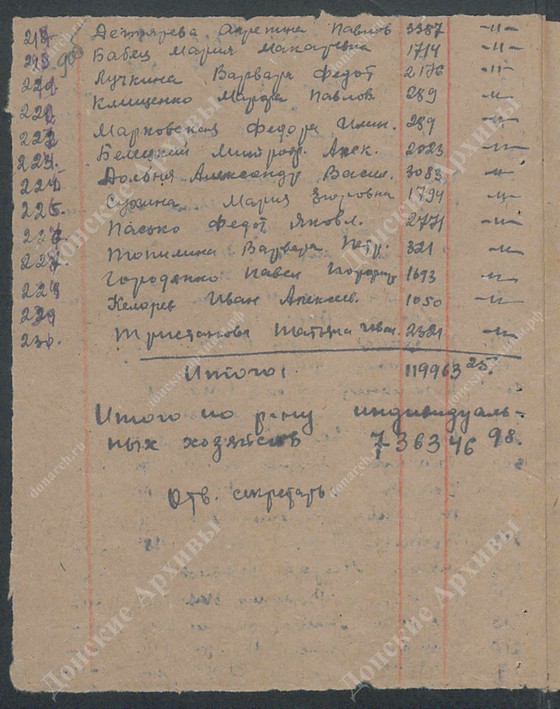 218 Дегтярева Агрепина Павлов 3387 -"-
219 Бабец Мария Макаровна 1714 -"-
220 Лучкина Варвара Федот 2176 -"-
221 Клищенко Марфа Павлов. 289 -"-
222 Марковская Федора Илин. 289 -"-
223. Белецкий Митроф. Алек. 2023 -"-
224 Александру Васил. 3083 -"-
225. Сухина Мария Егоровна 1794 -"-
226 Пасько Федот Яковл. 2771 -"-
227 Топилина Варвара Петр. 321 -"-
228 Городянко Павел 1693 -"-
229 Келарев Иван Алексеев. 1050 -"-
230. Тристанова Татьяна Иван. 2321 -"-
Итого: 119963 25.
Итого по р-ну индивидуаль-
ных хозяйств 736346 98.
Отв. секретарь
Донские Архивы
donarch.ru
донскиеархивы.рф